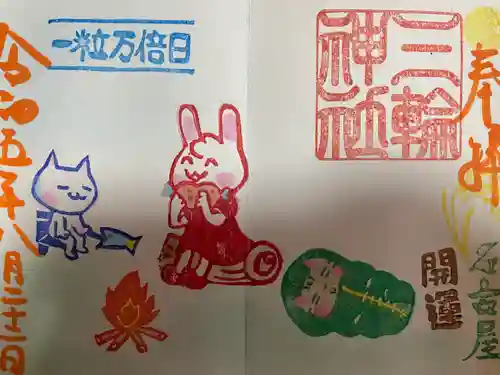 奉拝
三輪
神社
名古屋
開運
一粒万倍日
令和五年八月二十二日